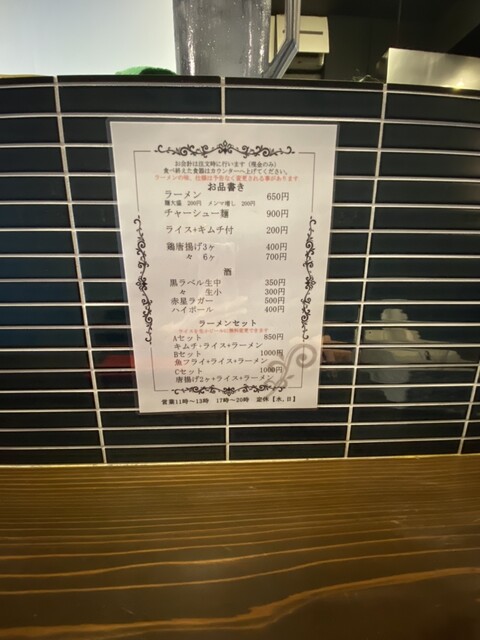 お会計は注文時に行います（現金のみ）
食べ終えた食器はカウンターへ上げてください。
ラーメンの味、店舗は予告なく変更される事があります
お品書き
ラーメン 650円
麺大盛 200円 メンマ増し 200円
チャーシュー麺 900円
ライス+キムチ付 200円
鶏唐揚げ3ヶ 400円
々 6ヶ 700円
酒
黒ラベル生中 350円
々 生小 300円
赤星ラガー 500円
ハイボール 400円
ラーメンセット
ライスを生小ビールに無料変更できます
Aセット 850円
キムチ・ライス+ラーメン
Bセット 1000円
魚フライ+ライス+ラーメン
Cセット 1000円
唐揚げ2ヶ+ライス+ラーメン
営業11時～13時 17時～20時 定休【水,日】